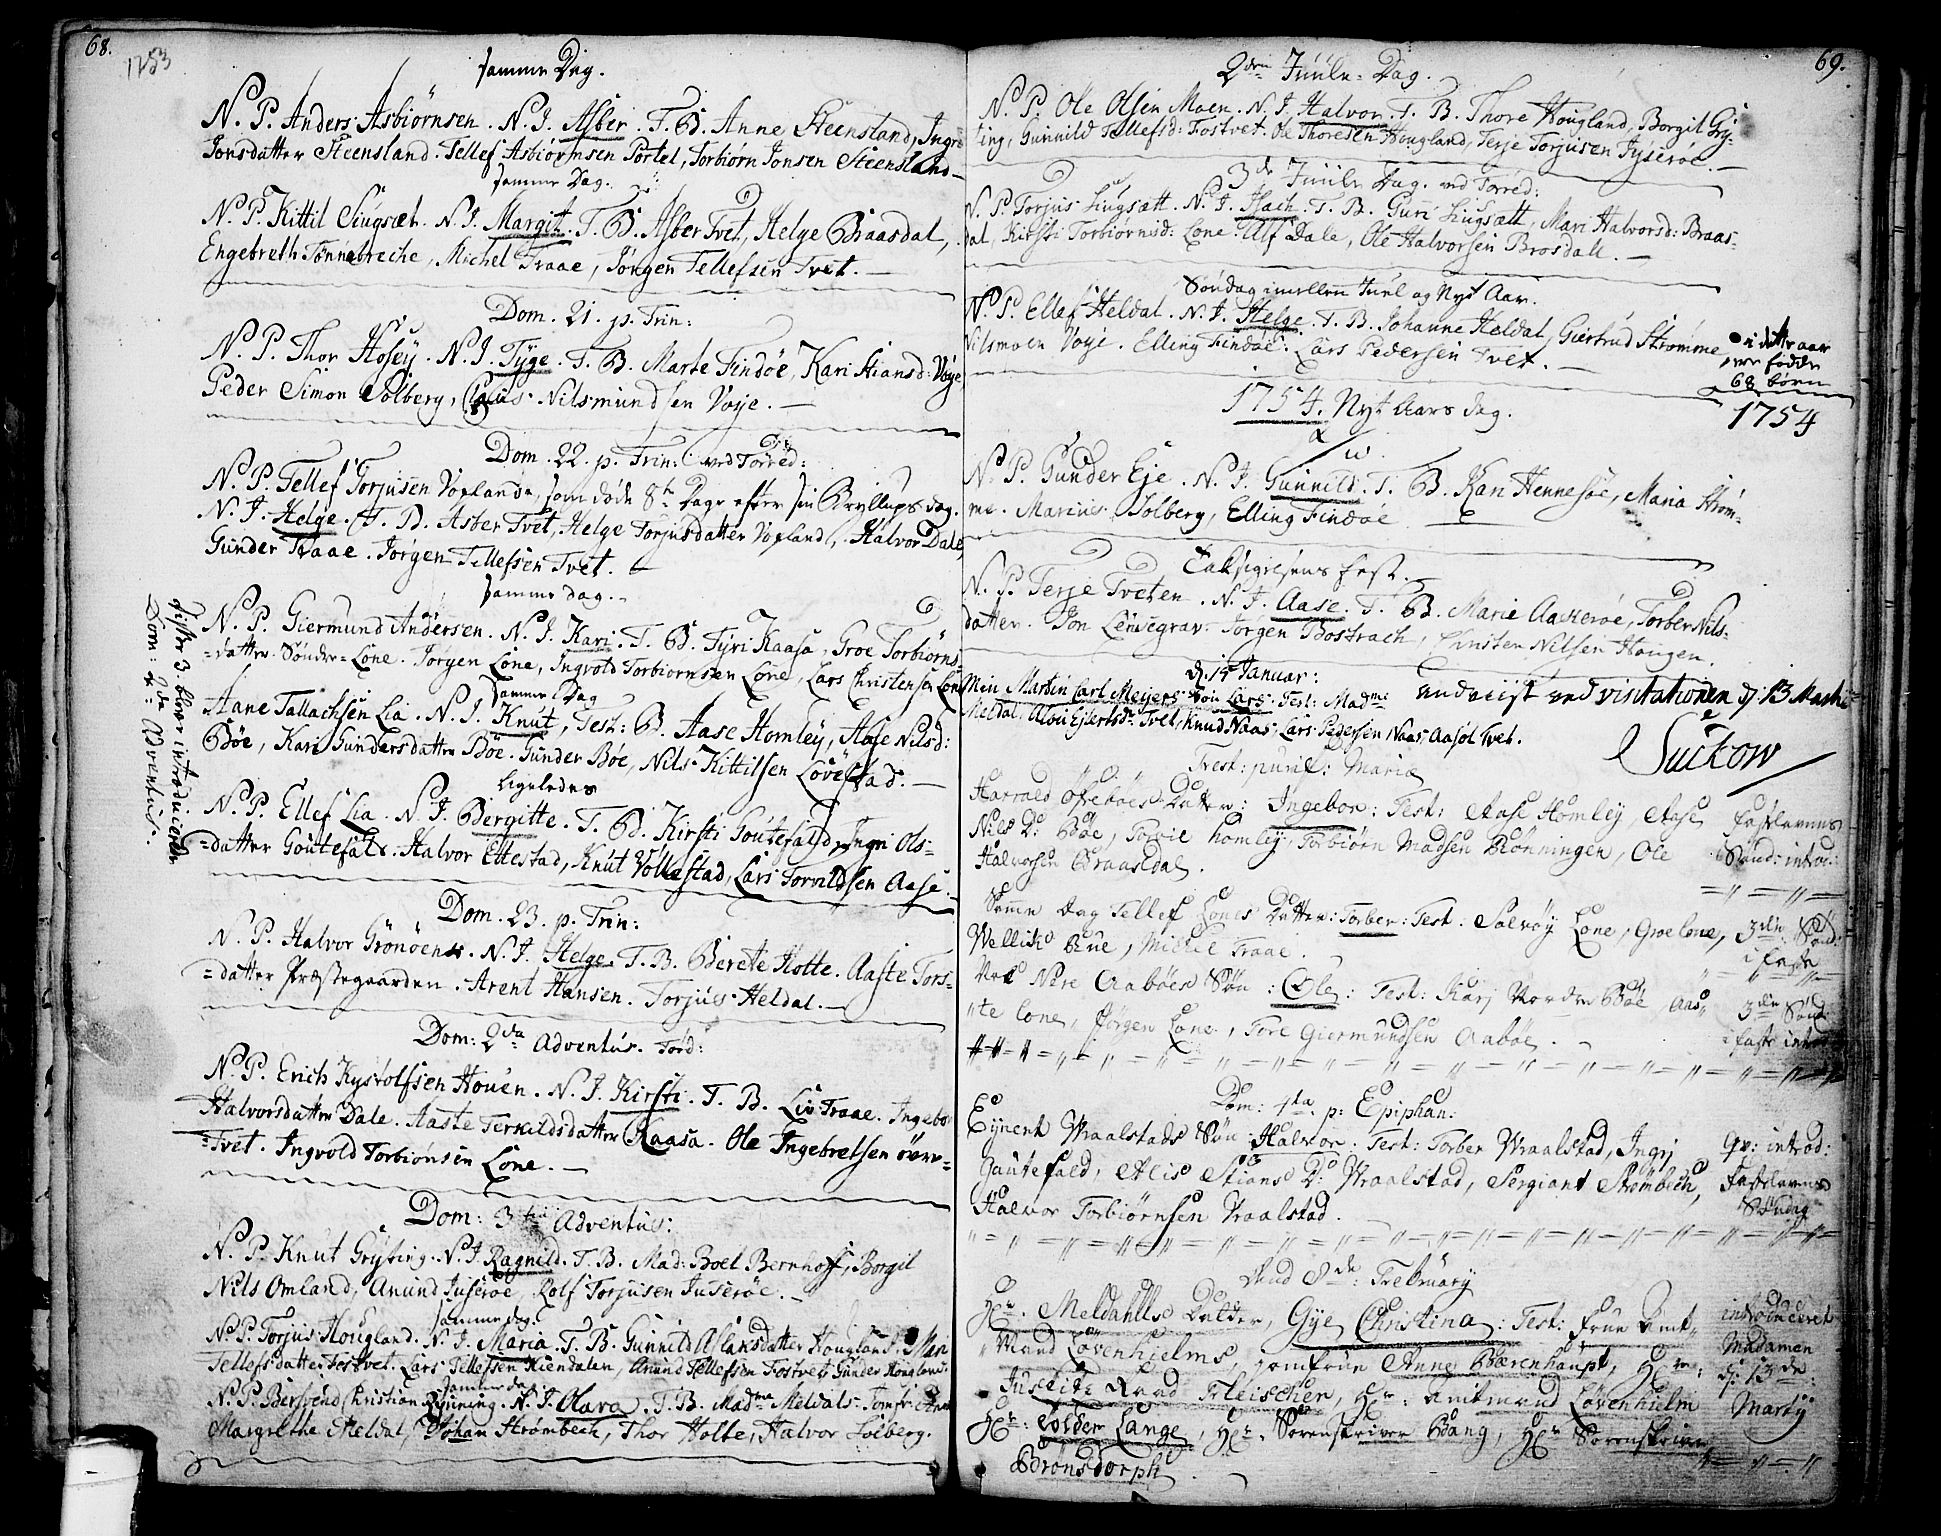 68.
1753
samme Dag.
N. P. Anders Asbiörnsen. N. I. Asber. T. B. Anne Steensland, Ingr
Jonsdatter Steensland. Tellef Asbiörnsen Portel, Torbiörn Jonsen Steensland
samme Dag.
N. P. Kittil Siugsæt. N. I. Margit. T. B. Asber Tvet, Helge Baasdal,
Engebreth Tönnebreche, Michel Fraae, Jörgen Tellefsen Tvet.
Dom. 21. p. Trin:
N. P. Thor Hosey. N. I. Tyge. T. B. Marte Findöe, Kari Stiansd: Voje
Peder Simon Solberg, Claus Nilsmundsen Voje.
Dom. 22. p. Trin: ved Torred:
N. P. Tellef Torjusen Vogland, som döde 8te Dage efter sin Bryllups dag.
N. I. Helge. T. B. Asber Tvet, Helge Torjusdatter Vogland, Halvor Dale,
Gunder Fraae. Jörgen Tellefsen Tvet.
samme dag.
N. P. Giermund Andersen. N. I. Kari. T. B. Tyri Kaasa, Groe Torbiörns-
=datter Sönder=Lone. Jörgen Lone, Ingvold Torbiornsen Lone, Lars Christensen Lone
samme Dag
Aane Tallachsen Lia. N. I. Knut, Test: B. Aase Homley, Aase Nilsd:
Böe, Kari Gundersdatter Böe. Gunder Böe, Nils Kittilsen Lövestad.
ligeledes
N. P. Ellef Lia. N. I. Bergitte. T. B. Kirsti Goutefald, Ingri Ols=
=datter Goutefals. Halvor Ettestad, Knut Vollestad, Lars Torvildsen Aase.
disse 3. blev introducerede
Dom: 2da Adventus.
Dom. 23. p. Trin:
N. P. Halvor Grönöen. N. I. Helge. T. B. Berete Holte. Aaste Tors-
=datter Præstegaarden. Arent Hansen. Torjus Heldal.
Dom: 2da Adventus. Törd:
N. P. Erich Kystolfsen Houen. N. I. Kirsti. T. B. Liv Fraae. Ingebor
Halvorsdatter Dale. Aaste Terkildsdatter Kaasa. Ole Ingebretsen över=
=Tvet. Ingvold Torbiönsen Lone.
Dom: 3tia Adventus:
N. P. Knut Gryting. N. I. Ragnild. T. B. Mad: Boel Bernhoft, Borgil
Nils Omland, Anund Juseröe, Rolf Torjusen Juseröe.
samme dag.
N. P. Torjus Hougland. N. I. Maria. T. B. Gunnild Aslansdatter Hougland, Mari
Tellefsdatter Fostvet. Lars Tellefsen Kiendalen, Anund Tellefsen Fostvet, Gunder Hougland
samme dag
N. P. Bersvend Christian Rynning. N. I. Clara. T. B. Madme Meldals. Jomfr: Anne
Margrethe Meldal, Johan Strömbech, Thor Holte, Halvor Solberg.
69.
2den Juule-Dag.
N. P. Ole Olsen Moen. N. I. Halvor. T. B. Thore Hougland, Borgil Gry-
ting, Gunnild Tellefsd: Fostvet. Ole Thoresen Hougland, Terje Torjusen Jyseröe.
3de Juule Dag. ved Torred:
N. P. Torjus Siugsætt. N. I. Hach. T. B. Guri Siugsætt, Mari Halvorsd: Braas-
dal, Kirsti Torbiörnsd: Lone. Ulf Dale, Ole Halvorsen Brosdall.
Söndag imellem Juul og Nyt Aar.
N. P. Ellef Heldal. N. I. Helge. T. B. Johanne Heldal, Giertrud Strömme
Nilsmoen Voje. Elling Findöe. Lars Pedersen Tvet.
i dette aar
ere födde
68 börn
1754. Nyt Aars dag.
1754
N. P. Gunder Eje. N. I. Gunnild. T. B. Kari Hennesöe, Maria Ström-
me. Marius Solberg, Elling Findöe
Taksigelsens fest.
N. P. Terje Tveten. N. I. Aase. T. B. Marie Aaseröe, Torber Nils-
datter. Jon Lensegrav. Jörgen Bostrach, Christen Nilsen Hougen.
d. 14 Januar:
Min Martin Carl Meyers Sön Lars. Test: Madme
Meldal. Alou Ejlertsd: Tvet, Knud Naas, Lars Pedersen Naas, Aasol Tvet.
underviist ved visitationen d. 13 Martii
Suckow
Fest: purif: Mariæ
Harrald Ofsteböes Datter: Ingebor: Test: Aase Homley, Aase
Nils D: Böe, Torvie Homley, Torbiörn Madsen Rönningen, Ole
Halvorsen Braasdal.
Fastelavens
Sönd: introd:
Samme dag Tellef Lones Datter: Torber: Test: Salvöy Lone, Groe Lone,
Wellik Bue, Michel Fraae.
3die Sönd:
i faste
Nere Aaböes Sön: Ole: Test: Kari Norder Böe, Aas-
te Lone, Jörgen Lone, Tore Giermundsen Aaböe.
3die Sönd:
i faste introd
Dom: 1ta p: Epiphan:
Ejnert Vraalstads Sön: Halvor. Test: Torber Vraalstad, Ingrj
Gautefald, Alis Stians D: Vraalstad, Sergiant Strömbech,
Halvor Torbiörnsen Vraalstad.
qv: introd:
Fastelavens
Söndag
8de Februarij
Hr. Meldahls Datter, Gye Christina: Test: Frue Amt
Mand Lövenhielms, Jomfrue Anne Bærenhaupt, Hr:
Justitz Raad Fleischer, Hr: Amtmand Lövenhielm
Hr: Tolder Lange, Hr. Sorenskriver Bang, Hr Sorenskriver
Brönsdorph.
introduceret
Madamen
d: 13de
Martij